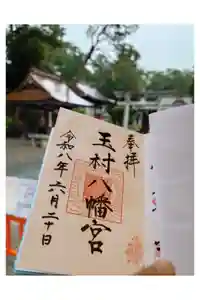 奉拝
玉村八幡宮
令和八年六月二十日